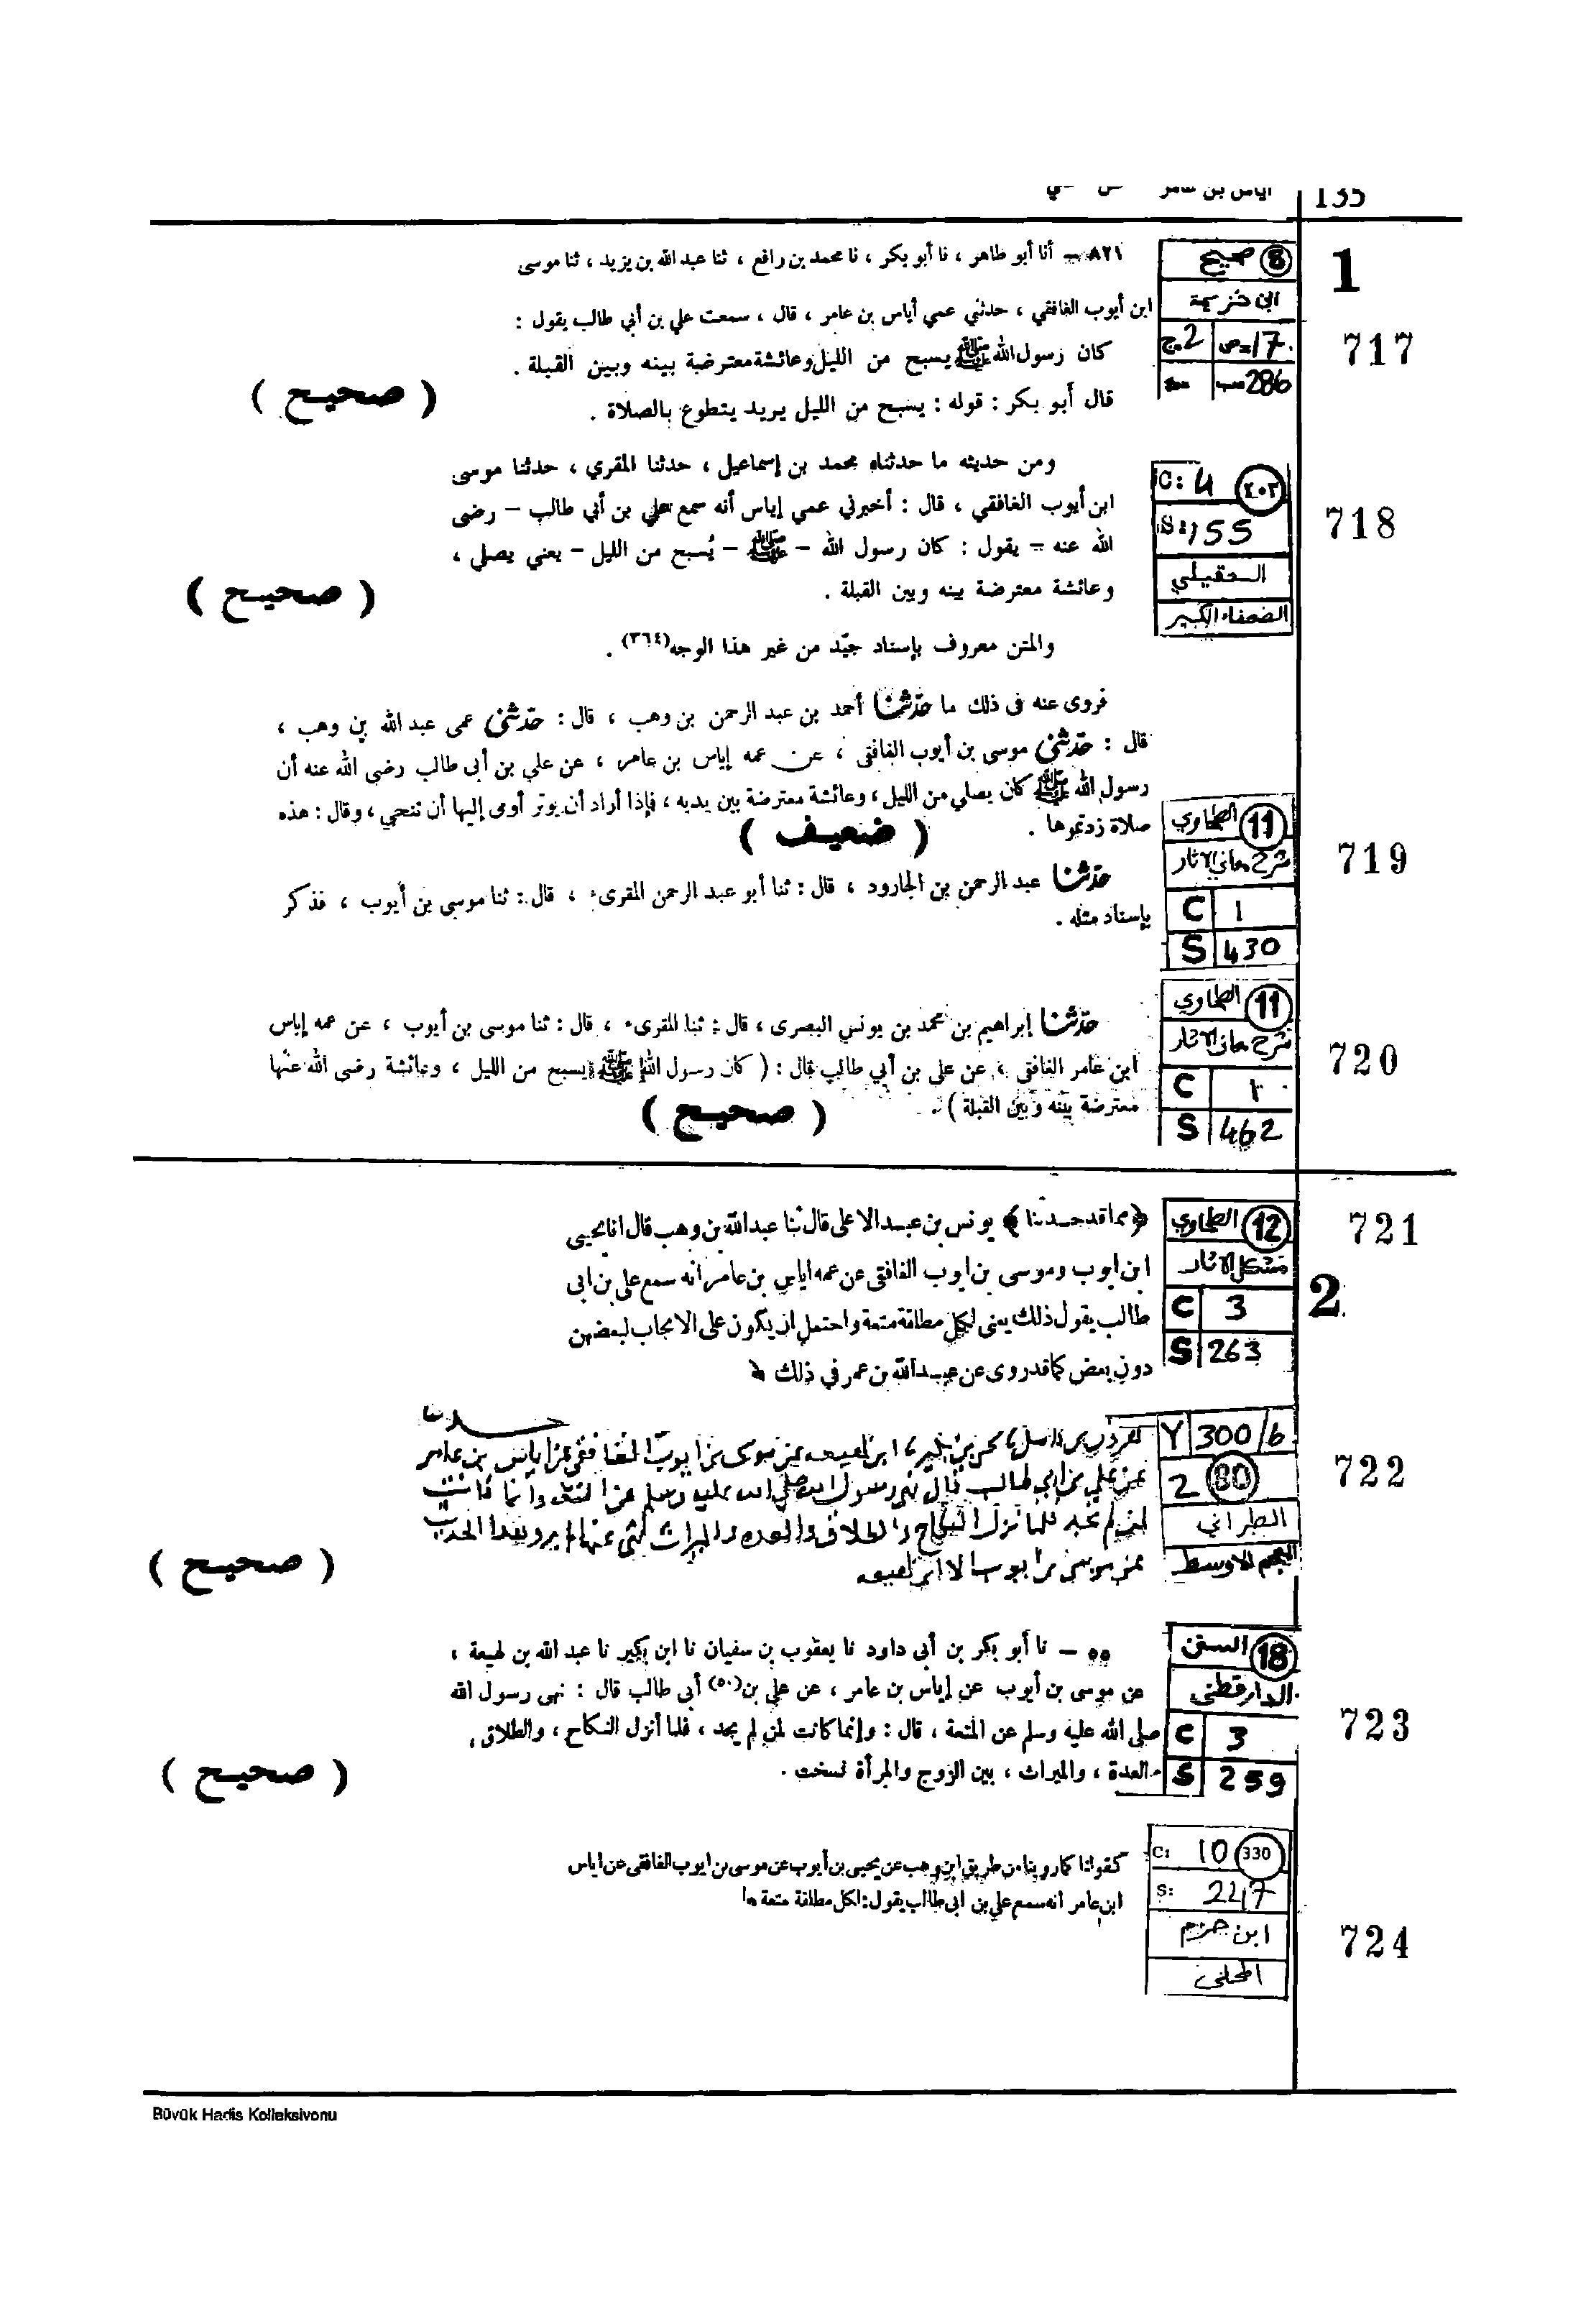 135
اياس بن عامر عن علي
1
717
8 صحيح
ابن خزيمة
ج 2 ص 17
286
٨٢١ – أنا أبو طاهر ، نا أبو بكر ، نا محمد بن رافع ، ثنا عبد الله بن يزيد ، ثنا موسى
ابن أيوب الغافقي ، حدثني عمي أياس بن عامر ، قال ، سمعت علي بن أبي طالب يقول :
كان رسول الله ﷺ يسبح من الليل وعائشة معترضة بينه وبين القبلة .
قال أبو بكر : قوله : يسبح من الليل يريد يتطوع بالصلاة .
( صحيح )
718
C: 4 ٤٠٢
S: 155
العقيلي
الضعفاء الكبير
ومن حديثه ما حدثناه محمد بن إسماعيل ، حدثنا المقري ، حدثنا موسى
ابن أيوب الغافقي ، قال : أخبرني عمي إياس أنه سمع علي بن أبي طالب – رضى
الله عنه – يقول : كان رسول الله – ﷺ – يُسبح من الليل – يعني يصلي ،
وعائشة معترضة بينه وبين القبلة .
( صحيح )
والمتن معروف بإسناد جيّد من غير هذا الوجه(٣٦٤) .
719
11 الطحاوي
شرح معاني الاثار
C 1
S 430
فروى عنه فى ذلك ما حدّثنا أحمد بن عبد الرحمن بن وهب ، قال : حدّثنى عمى عبد الله بن وهب ،
قال : حدّثنى موسى بن أيوب الغافقى ، عن عمه إياس بن عامر ، عن علي بن أبى طالب رضى الله عنه أن
رسول الله ﷺ كان يصلي من الليل ، وعائشة معترضة بين يديه ، فإذا أراد أن يوتر أومى إليها أن تنحي ، وقال : هذه
صلاة زدتموها .
( ضعيف )
حدّثنا عبد الرحمن بن الجارود ، قال : ثنا أبو عبد الرحمن المقرىء ، قال : ثنا موسى بن أيوب ، فذكر
بإسناد مثله .
720
11 الطحاوي
شرح معاني الاثار
C ١
S 462
حدّثنا إبراهيم بن محمد بن يونس البصرى ، قال : ثنا المقرىء ، قال : ثنا موسى بن أيوب ، عن عمه إياس
ابن عامر الغافقى ، عن على بن أبي طالب قال : ( كان رسول الله ﷺ يسبح من الليل ، وعائشة رضى الله عنها
معترضة بينه وبين القبلة ) .
( صحيح )
721
2
12 الطحاوي
مشكل الاثار
C 3
S 263
﴿ مما قد حدثنا ﴾ يونس بن عبد الاعلى قال ثنا عبد الله بن وهب قال انا يحيى
ابن ايوب وموسى بن ايوب الغافقى عن عمه اياس بن عامر انه سمع على بن ابى
طالب يقول ذلك يعنى لكل مطلقة متعة واحتمل ان يكون على الايجاب لبعضهن
دون بعض كما قد روى عن عبد الله بن عمر في ذلك
722
Y 300/b
2 80
الطبراني
المعجم الاوسط
حدثنا
ابن لهيعه عن موسى بن ايوب الغافقي عن اياس بن عامر
عن علي بن ابي طالب قال نهى رسول الله صلى الله عليه وسلم عن المتعه وانما كانت
لمن لم يجد فلما نزل النكاح والطلاق والعده والميراث نهى عنها لم يرو هذا الحديث
عن موسى بن ايوب الا ابن لهيعه
( صحيح )
723
18 السنن
الدارقطني
C 3
S 259
٥٥ – نا أبو بكر بن أبى داود نا يعقوب بن سفيان نا ابن بكير نا عبد الله بن لهيعة ،
عن موسى بن أيوب عن إياس بن عامر ، عن علي بن(٥٠) أبي طالب قال : نهى رسول الله
صلى الله عليه وسلم عن المتعة ، قال : وإنما كانت لمن لم يجد ، فلما أنزل النكاح ، والطلاق ،
والعدة ، والميراث ، بين الزوج والمرأة نسخت .
( صحيح )
724
C: 10 330
S: 247
ابن حزم
المحلى
كقولنا كما روينا من طريق ابن وهب عن يحيى بن أيوب عن موسى بن ايوب الغافقى عن اياس
ابن عامر انه سمع علي بن ابى طالب يقول : لكل مطلقة متعة
Büyük Hadis Kolleksiyonu